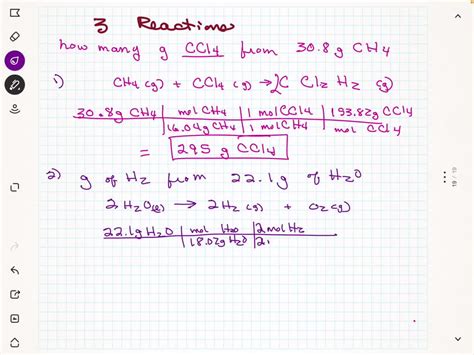 3 Reactions
how many g CCl4 from 30.8g CH4
1) CH4(g) + CCl4(g) → 2C Cl2 H2 (g)
30.8g CH4 | mol CH4 | 1 mol CCl4 | 153.82g CCl4
16.04g CH4 | 1 mol CH4 | mol CCl4
= 295 g CCl4
2) g of H2 from 22.1g of H2O
2 H2O(g) → 2H2(g) + O2(g)
22.1g H2O | mol H2O | 2 mol H2
18.02g H2O | 2
19 / 19